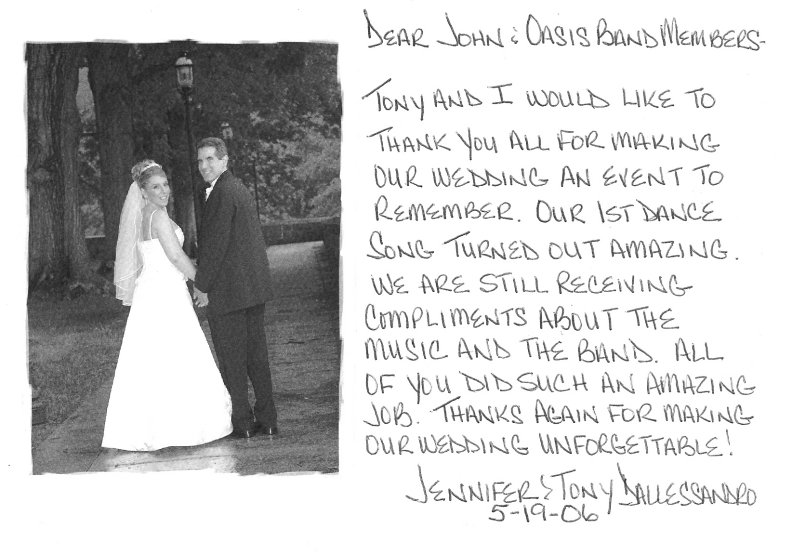 DEAR JOHN & OASIS BAND MEMBERS-
TONY AND I WOULD LIKE TO
THANK YOU ALL FOR MAKING
OUR WEDDING AN EVENT TO
REMEMBER. OUR 1ST DANCE
SONG TURNED OUT AMAZING.
WE ARE STILL RECEIVING
COMPLIMENTS ABOUT THE
MUSIC AND THE BAND. ALL
OF YOU DID SUCH AN AMAZING
JOB. THANKS AGAIN FOR MAKING
OUR WEDDING UNFORGETTABLE!
JENNIFER & TONY DALLESSANDRO
5-19-06